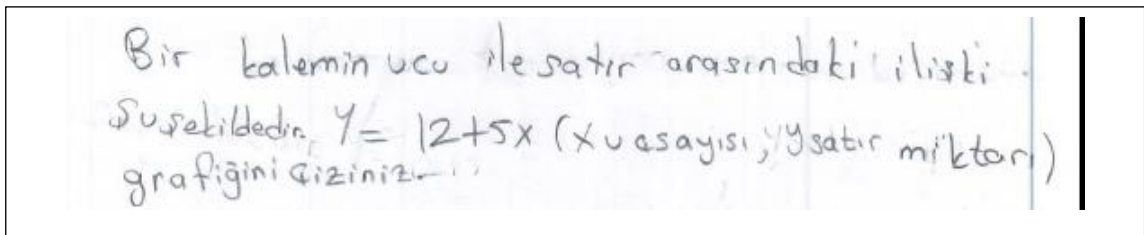 Bir kalemin ucu ile satır arasındaki ilişki
şu şekildedir. Y = 12+5x (x uç sayısı, y satır miktarı)
grafiğini çiziniz.